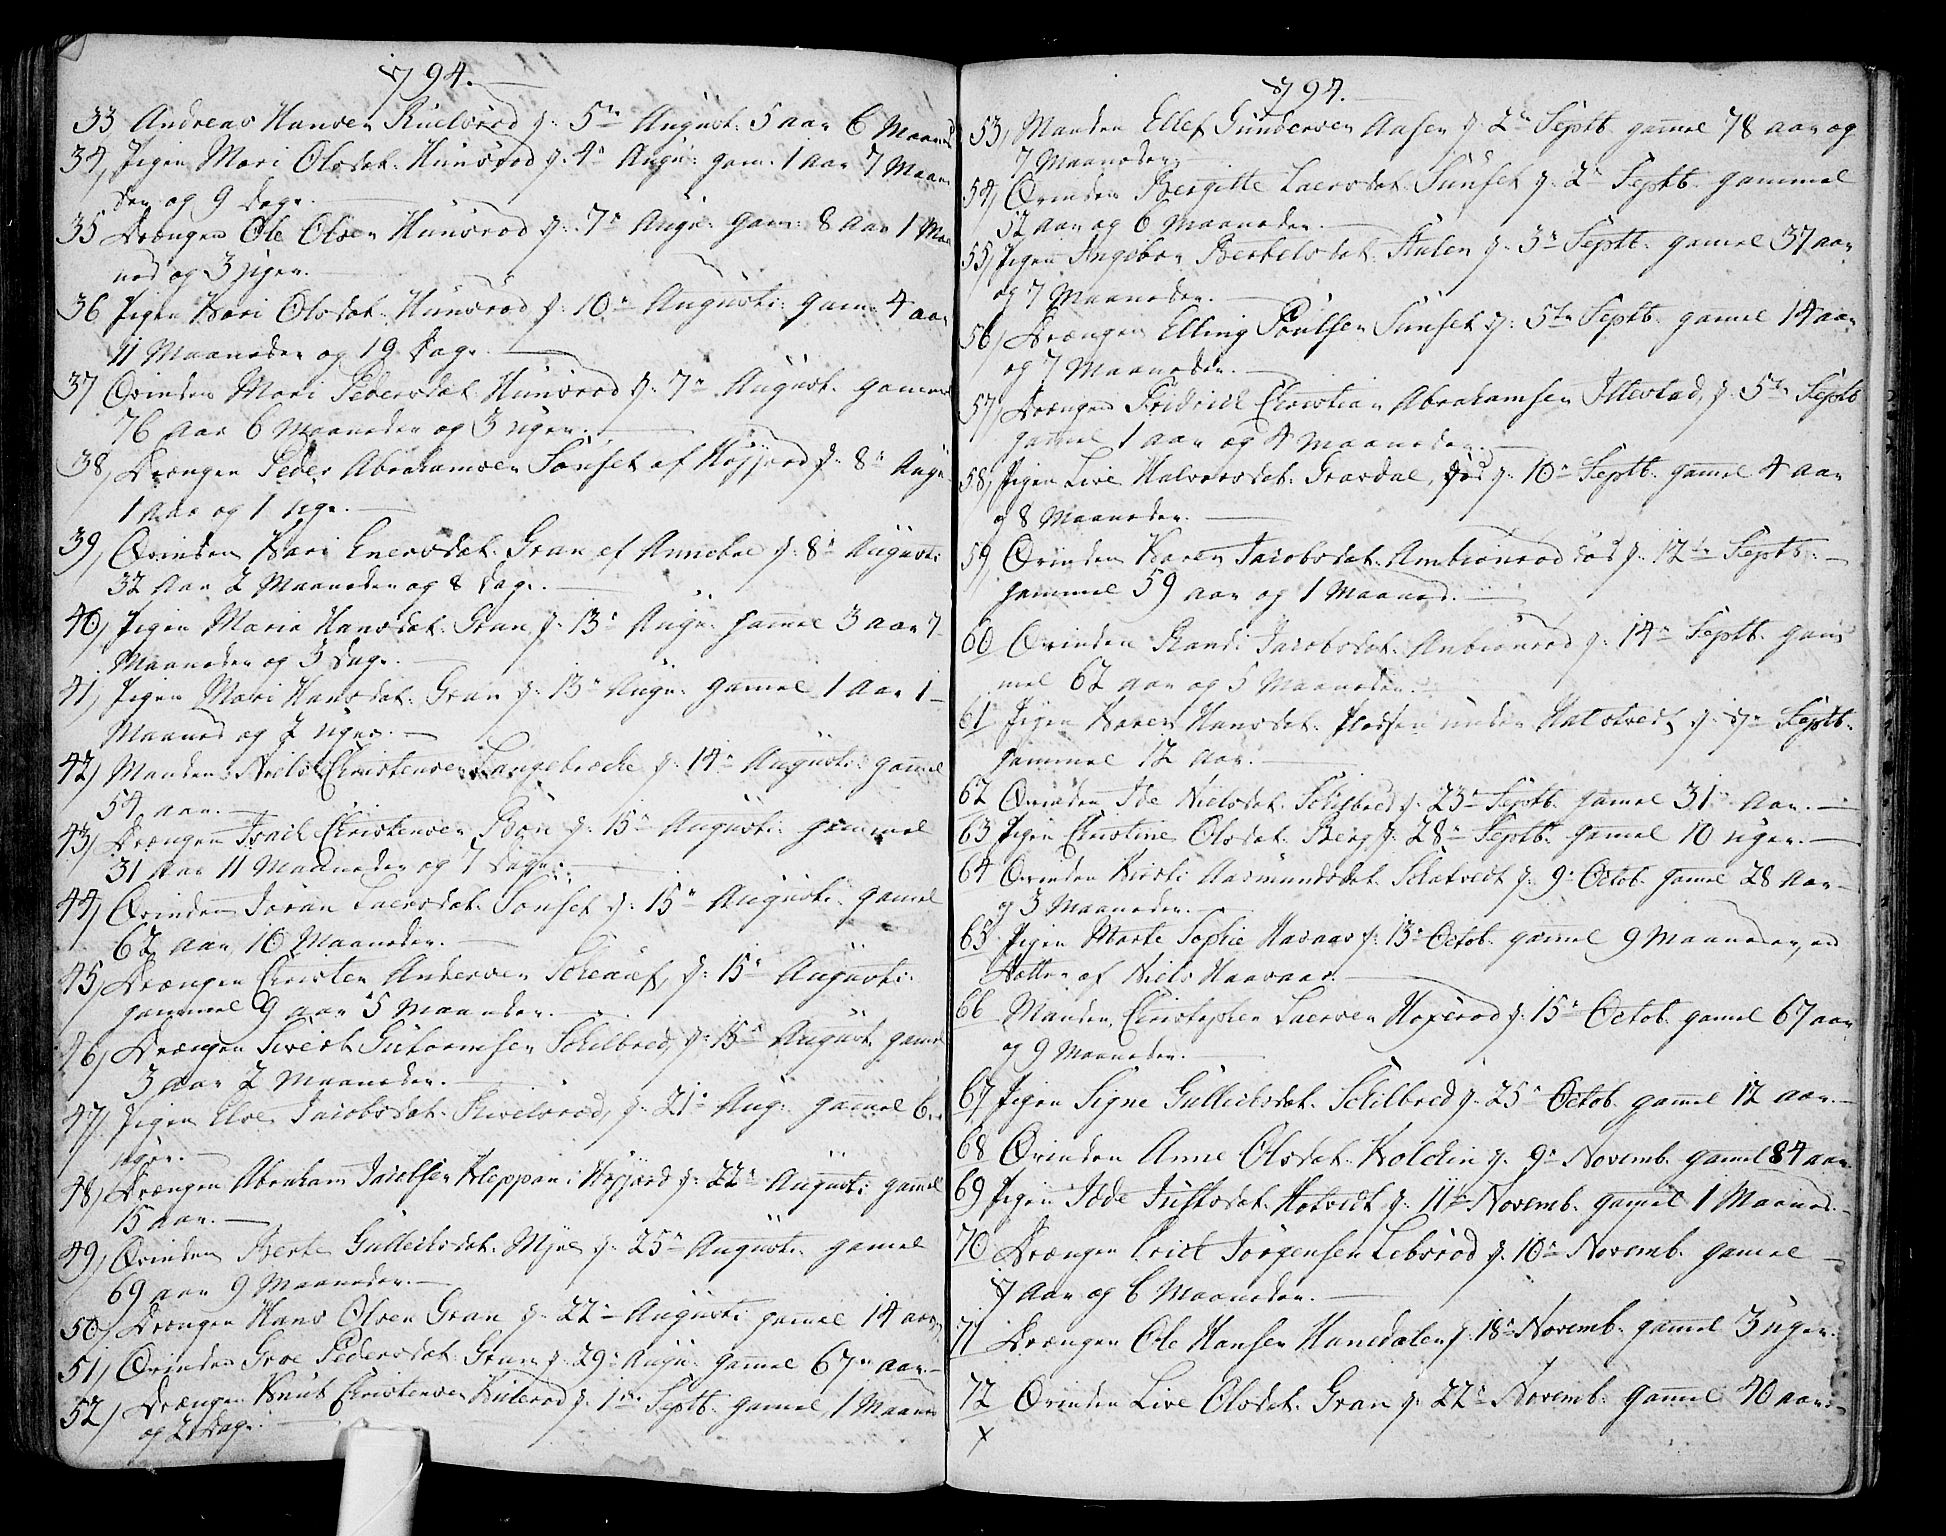 1794.
33 Andreas Hansen d: 5te August: 5 aar 6 Maaned
34, Pigen Mari Olsdat: Hunsrød d: 4n Augu: gam: 1 aar 7 Maane
der og 9 Dage.
35 Drængen Ole Olsen Hunsrød d: 7n Augu: gam: 8 aar 1 Maa
ned og 3 uger.
36 Pigen Kari Olsdat: Hunsrød d: 10n Augusti: gam: 4 aar
11 Maaneder og 19 Dage.
37 Qvinden Mari Pedersdat: Hunsrød d: 7n August: gammel
76 aar 6 Maaneder og 3 uger.
38, Drængen Peder Abrahamsen Sønset af Høyjord d: 8n Augu:
1 aar og 1 uge.
39, Qvinden Kari Enersdat: Gran af Anneboe d: 8n Augusti:
32 aar 2 Maaneder og 8 Dage.
40, Pigen Maria Hansdat: Gran d: 13n Augu: gamel 3 aar 7
Maaneder og 3 Dage.
41, Pigen Mari Hansdat: Gran d: 13n Augu: gamel 1 aar 1
Maaned og 2 uger.
42, Manden Niels Christensen Langebræcke d: 14n Augusti: gammel
54 aar.
43, Drængen Isach Christensen Bøen d: 15n Augusti: gammel
31 aar 11 Maaneder og 7 Dage.
44, Qvinden Joran Laersdat: Sønset d: 15n Augusti: gamel
62 aar, 10 Maaneder.
45, Drængen Christen Andersen d: 15n Augusti:
gammel 9 aar 5 Maaneder.
46, Drængen Sivert Guttormsen Schilbred, d: 15n August: gamel
3 aar 2 Maaneder.
47, Pigen Else Jacobsdat: d: 21n Aug: gamel 6
uger.
48, Drængen Abraham Jacobsen Kleppan i Høyjord d: 22n Augusti: gamel
15 aar.
49, Qvinden Berte Gulleichsdat: Myre d: 25n Augusti: gamel
69 aar 9 Maaneder.
50, Drængen Hans Olsen Gran d: 22n Augusti: gamel 14 aar
51, Qvinden Groe Pedersdat: Gran d: 29n Augu: gamel 67 aar
52, Drængen Knut Christensen d: 1n Septb: gamel 1 Maaned
og 2 Dage.
1794.
53, Manden Ellef Gundersen Aasen d: 2n Septb: gamel 78 aar og
7 Maaneder
54, Qvinden Bergitte Laersdat: Sunset d: 2n Septb: gammel
52 aar og 6 Maaneder.
55, Pigen Ingebor Bertelsdat: Stulen d: 3n Septb: gamel 37 aar
og 7 Maaneder.
56, Drængen Elling Poulsen Sunset d: 5te Septb: gamel 14 aar
og 7 Maaneder.
57, Drængen Fridrich Christian Abrahamsen Illestad, d: 5te Septb
gamel 1 aar og 4 Maaneder.
58, Pigen Live Halvorsdat: Gravdal, død d: 10n Septb: gamel 4 aar
og 8 Maaneder.
59, Qvinden Karen Jacobsdat: Ambiønrød død d: 12te Septb:
gammel 59 aar og 1 Maaned.
60 Qvinden Randi Jacobsdat: Anbiønrød d: 14n Septb: gam
mel 62 aar og 5 Maaneder.
61 Pigen Karen Hansdat: Pladsen under Hatstvedt d: 7n Septb:
gammel 12 aar.
62 Qvinden Ide Nielsdat: Schisbred d: 23n Septb: gamel 31 aar.
63 Pigen Christine Olsdat: Berg d: 28n Septb: gamel 10 uger.
64 Qvinden Kirsti Aasmundsdat: Schatvedt d: 9n Octob: gamel 28 aar
og 3 Maaneder.
65 Pigen Marte Sophie Haavaas d: 13n Octob: gamel 9 Maaneder, en
Datter af Niels Haavaas.
66 Manden Christopher Laersen Høyerød d: 15n Octob: gamel 67 aar
og 9 Maaneder.
67 Pigen Signe Gulleichsdat: Schilbred d: 25n Octob: gamel 12 aar.
68 Qvinden Anne Olsdat: Kolchin d: 9n Novemb: gamel 84 aar
69 Pigen Idde Justsdat: Hotvedt d: 11te Novemb: gamel 1 Maaned.
70 Drængen Erich Jørgensen Lebsrød d: 10n Novemb: gamel
7 aar og 6 Maaneder.
71 Drængen Ole Hansen Hanedalen d: 18n Novemb: gamel 3 uger.
72 Qvinden Live Olsdat: Gran d: 22n Novemb: gamel 40 aar.
x